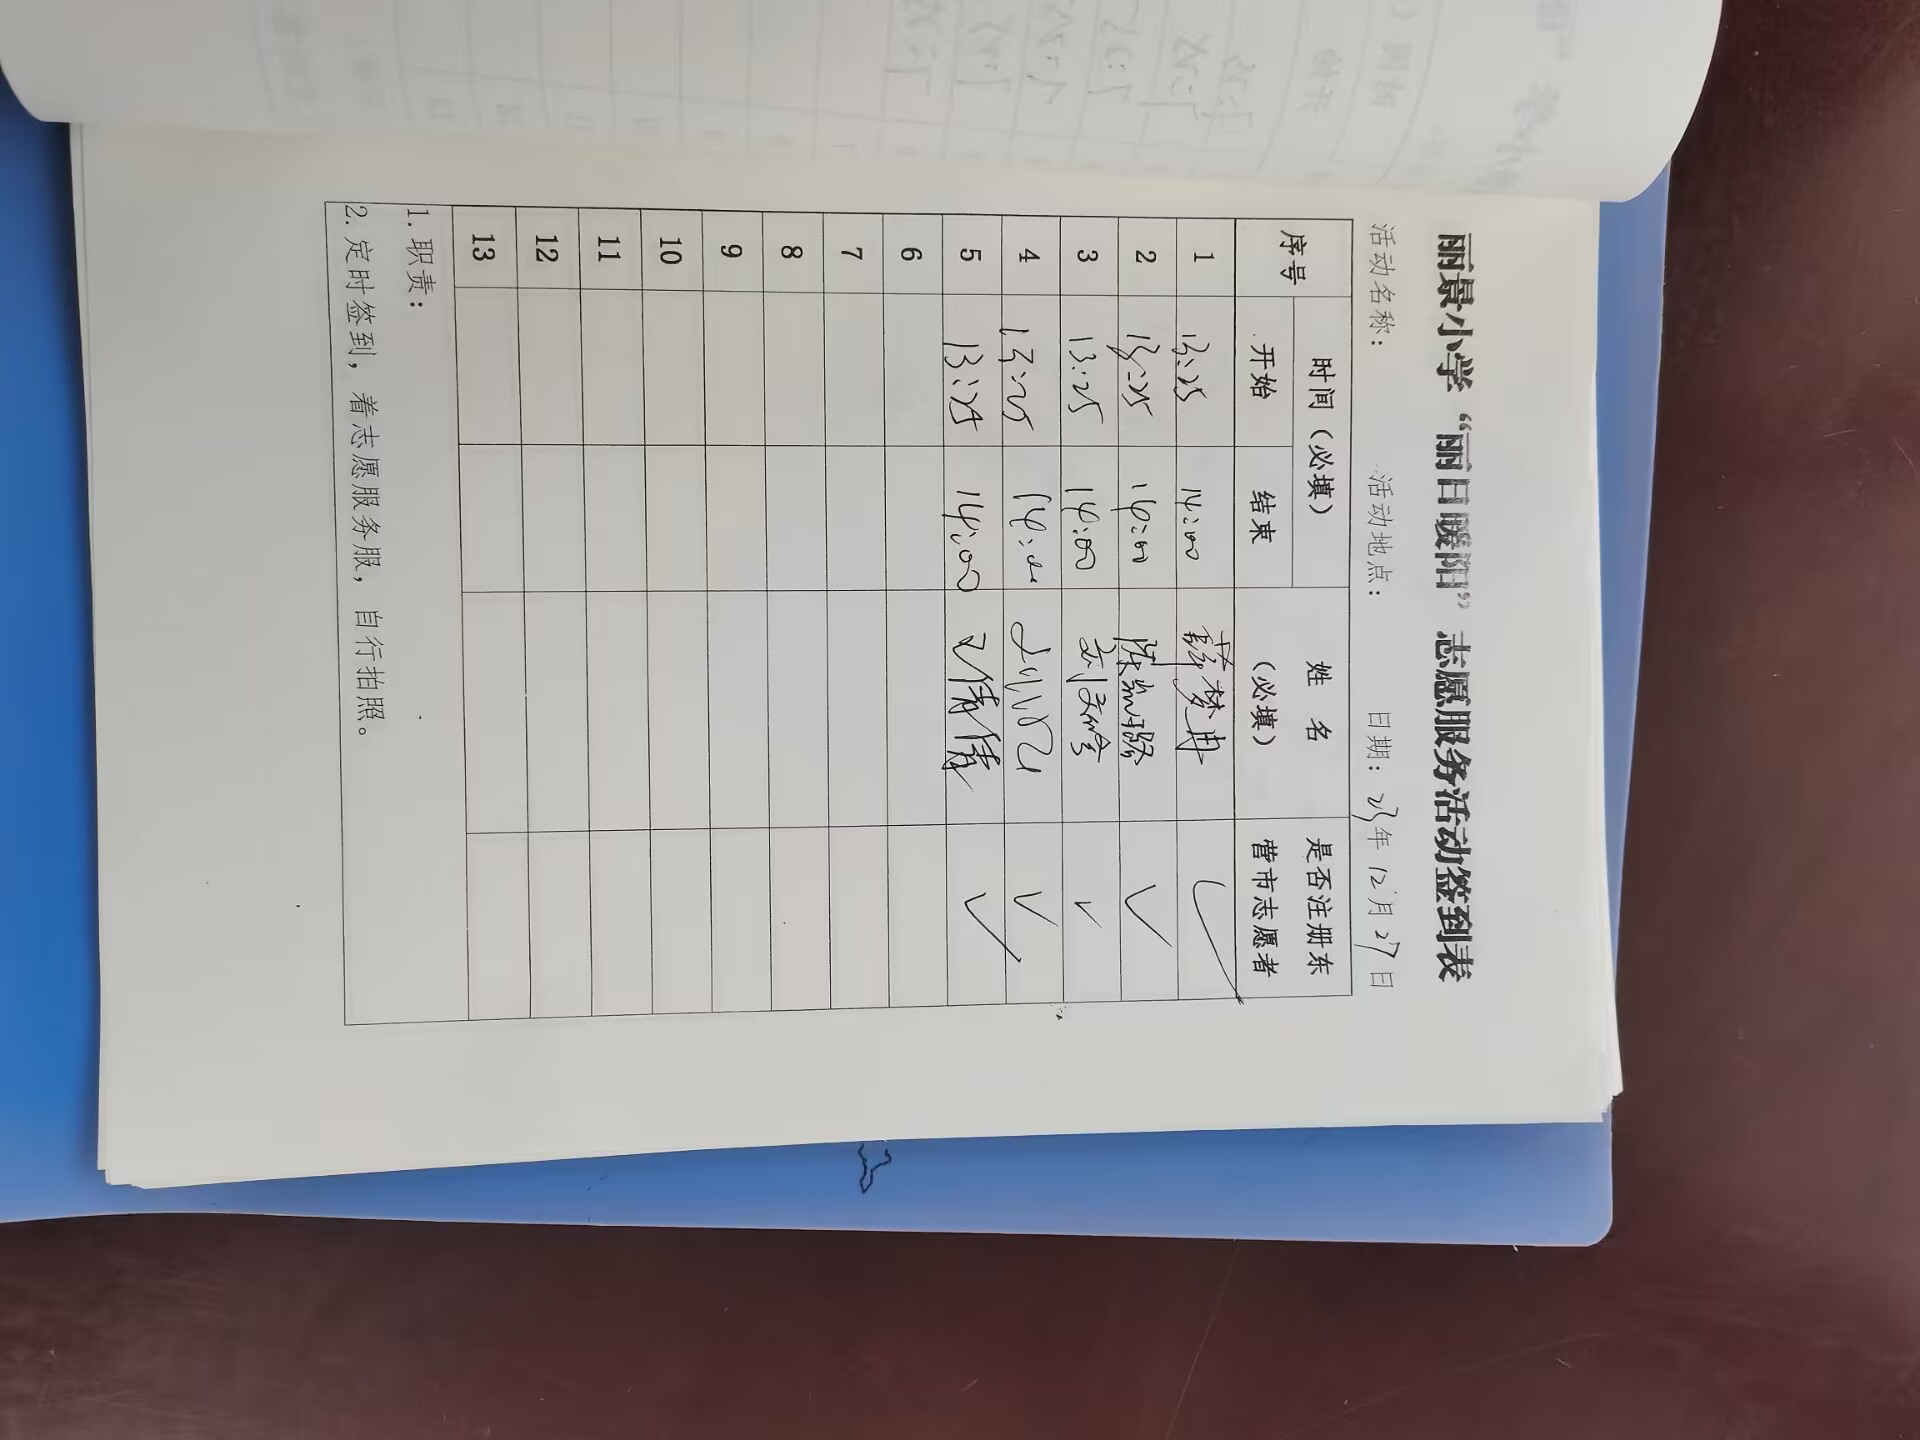 丽景小学“丽日暖阳”志愿服务活动签到表
活动名称： 活动地点： 日期：23年12月27日
序号 时间（必填） 姓 名（必填） 是否注册东营市志愿者
开始 结束
1 13:25 14:00 薛梦冉 ✓
2 13:25 14:00 ✓
3 13:25 14:00 ✓
4 13:25 14:00 ✓
5 13:25 14:00 王倩倩 ✓
6
7
8
9
10
11
12
13
1.职责：
2.定时签到，着志愿服务服，自行拍照。